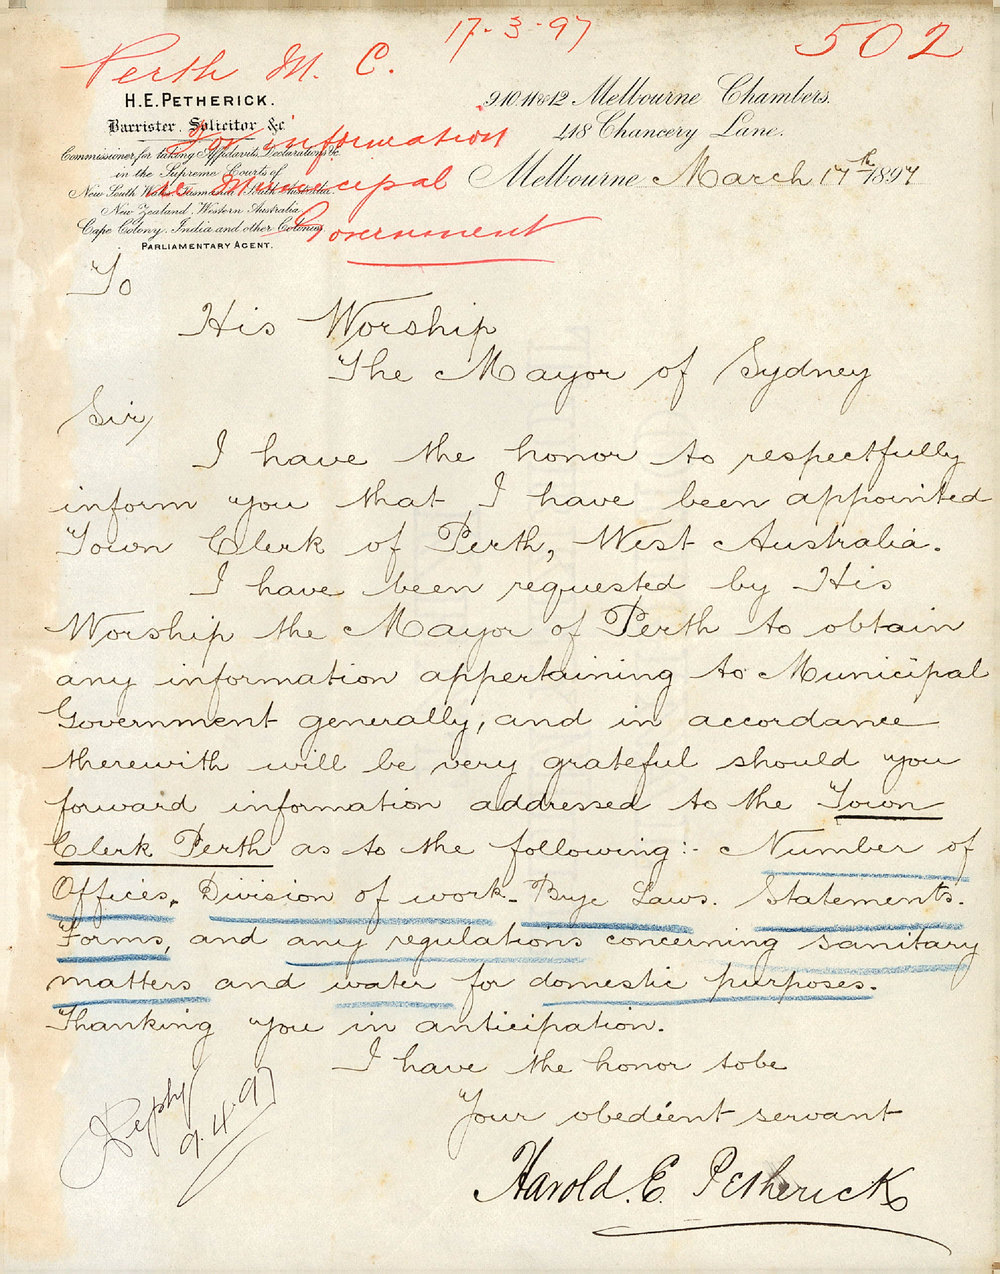 17-3-97
502
Perth M. C.
For information
re Municipal
Government
H.E. PETHERICK.
Barrister. Solicitor &c
Commissioner for taking Affidavits, Declarations &c.
in the Supreme Courts of
New South Wales, Tasmania, South Australia
New Zealand, Western Australia,
Cape Colony, India and other Colonies
PARLIAMENTARY AGENT.
9.10.11 & 12 Melbourne Chambers.
418 Chancery Lane.
Melbourne March 17th 1897
To
His Worship
The Mayor of Sydney
Sir,
I have the honor to respectfully
inform you that I have been appointed
Town Clerk of Perth, West Australia.
I have been requested by His
Worship the Mayor of Perth to obtain
any information appertaining to Municipal
Government generally, and in accordance
therewith will be very grateful should you
forward information addressed to the Town
Clerk Perth as to the following:- Number of
Offices. Division of work- Bye Laws. Statements.
Forms, and any regulations concerning sanitary
matters and water for domestic purposes.
Thanking you in anticipation.
I have the honor to be
Your obedient servant
Harold. E. Petherick
Reply
9.4.97